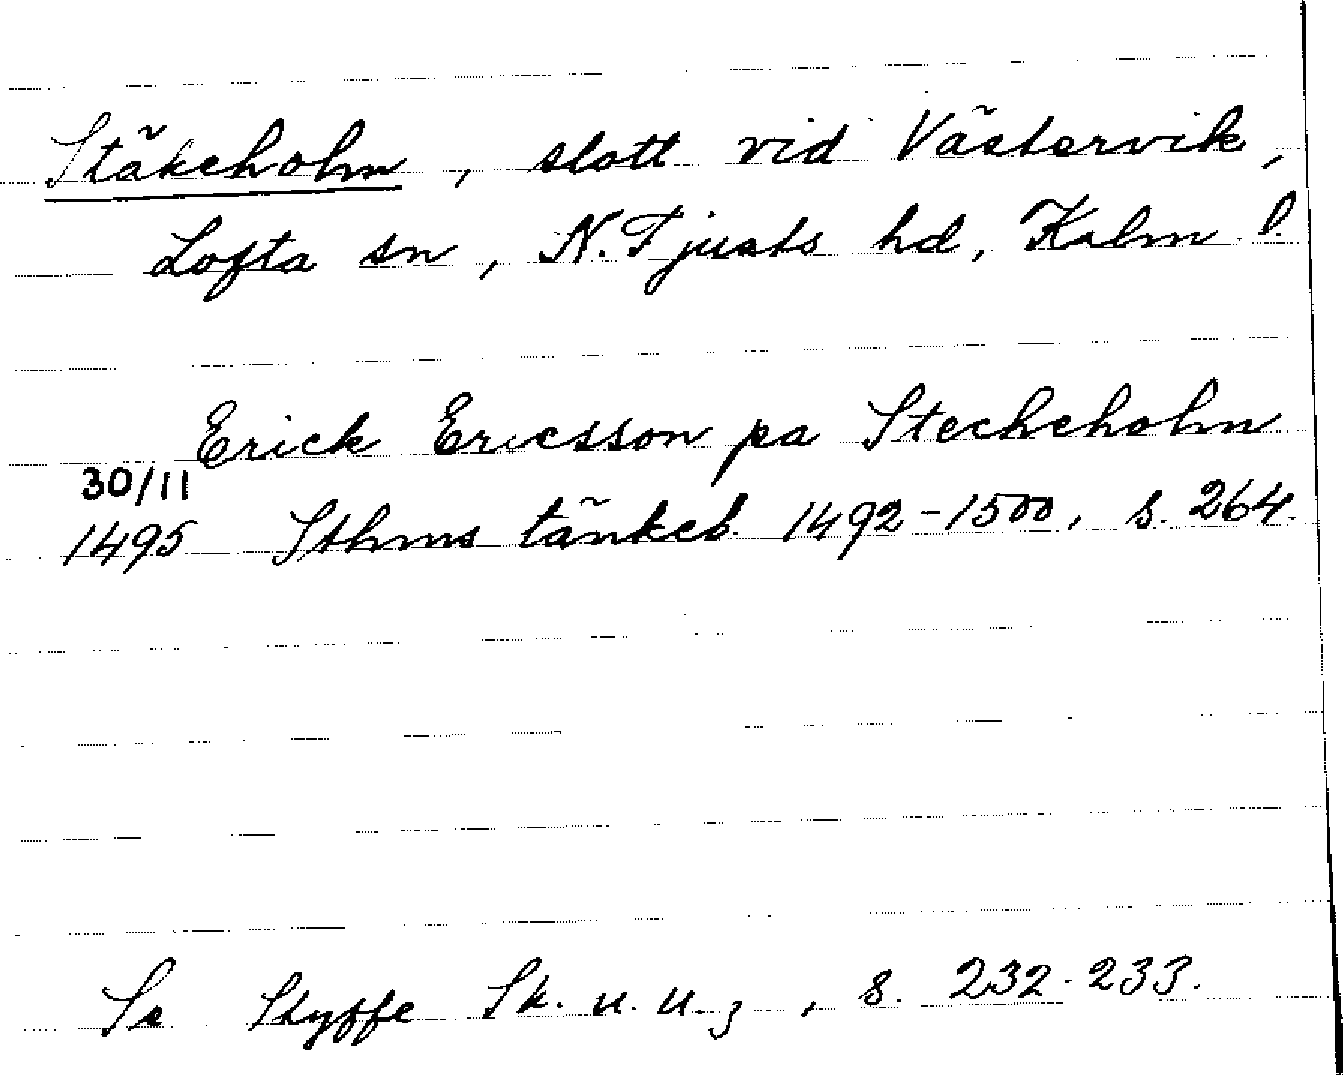 Stäkeholm, slott vid Västervik,
Lofta sn, N. Tjusts hd, Kalm l.
Erick Ericsson pa Stecheholm
30/11
1495 Sthms tänkeb. 1492-1500, s. 264.
Se Styffe Sk. u. u. 3, s. 232-233.